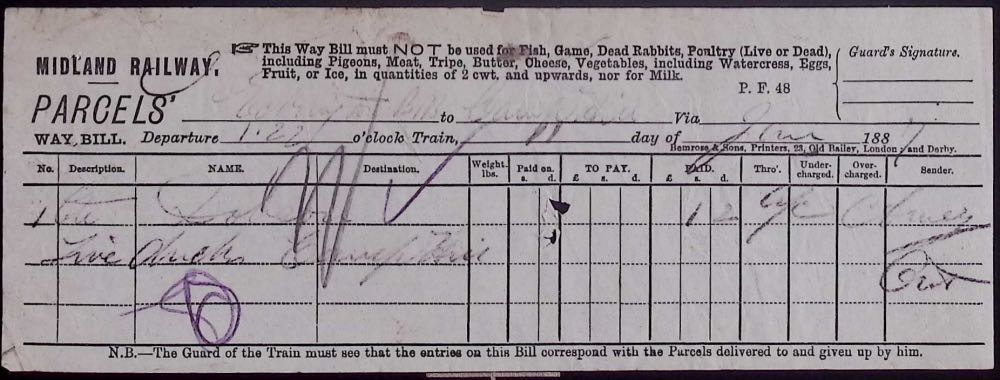 ☞ This Way Bill must NOT be used for Fish, Game, Dead Rabbits, Poultry (Live or Dead),
including Pigeons, Meat, Tripe, Butter, Cheese, Vegetables, including Watercress, Eggs,
Fruit, or Ice, in quantities of 2 cwt. and upwards, nor for Milk.
P. F. 48
Guard's Signature.
MIDLAND RAILWAY.
PARCELS'
to Camp Hill Via
WAY BILL. Departure 1.22 o'clock Train, 11 day of June 1887
Bemrose & Sons, Printers, 23, Old Bailey, London; and Derby.
No. Description. NAME. Destination. Weight. lbs. Paid on. s. d. TO PAY. £ s. d. PAID. £ s. d. Thro'. Under-charged. Over-charged. Sender.
1 1 2
Live Ducks Camp Hill
N.B.—The Guard of the Train must see that the entries on this Bill correspond with the Parcels delivered to and given up by him.